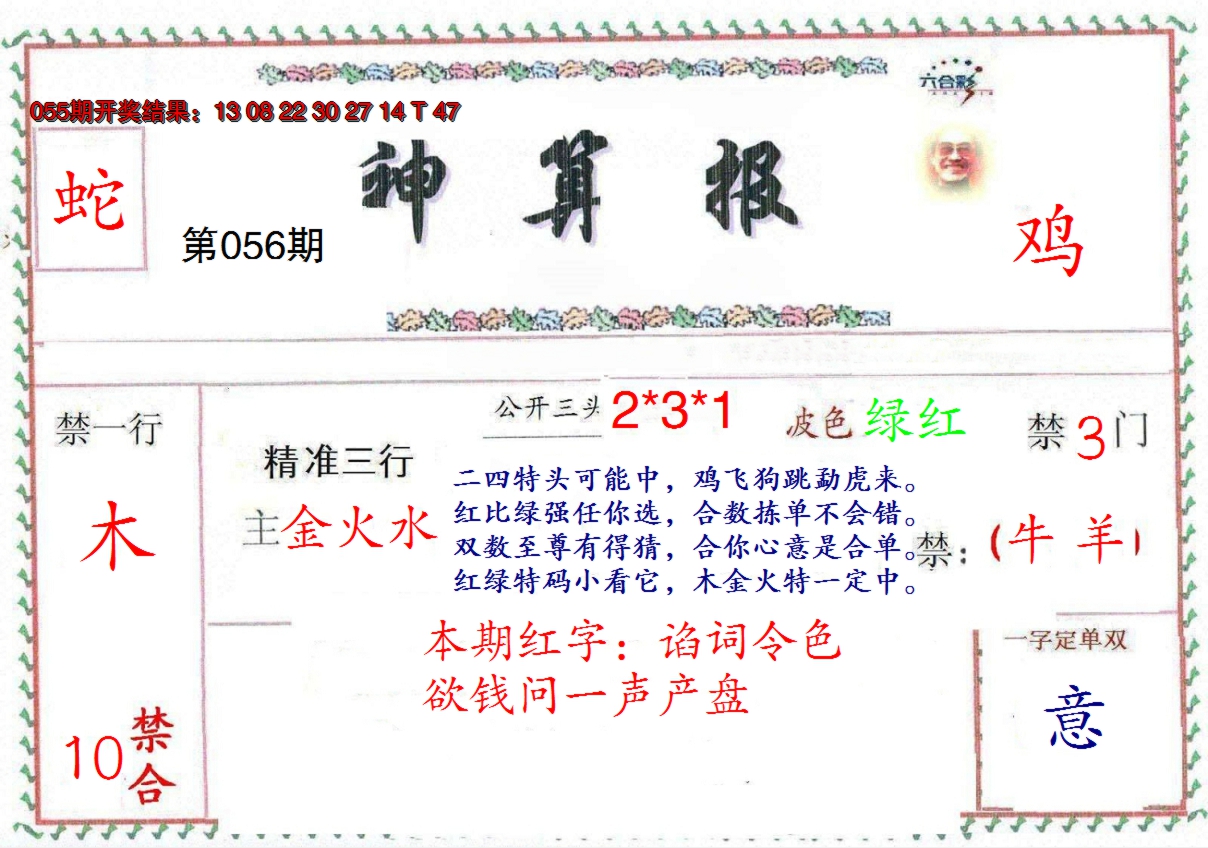 六合彩
055期开奖结果：13 08 22 30 27 14 T 47
神算报
蛇
第056期
鸡
禁一行
木
10
禁合
公开三头
2*3*1
波色 绿红
禁3门
精准三行
主金火水
二四特头可能中，鸡飞狗跳勐虎来。
红比绿强任你选，合数拣单不会错。
双数至尊有得猜，合你心意是合单。
红绿特码小看它，木金火特一定中。
禁：(牛 羊)
本期红字：谄词令色
欲钱问一声产盘
一字定单双
意